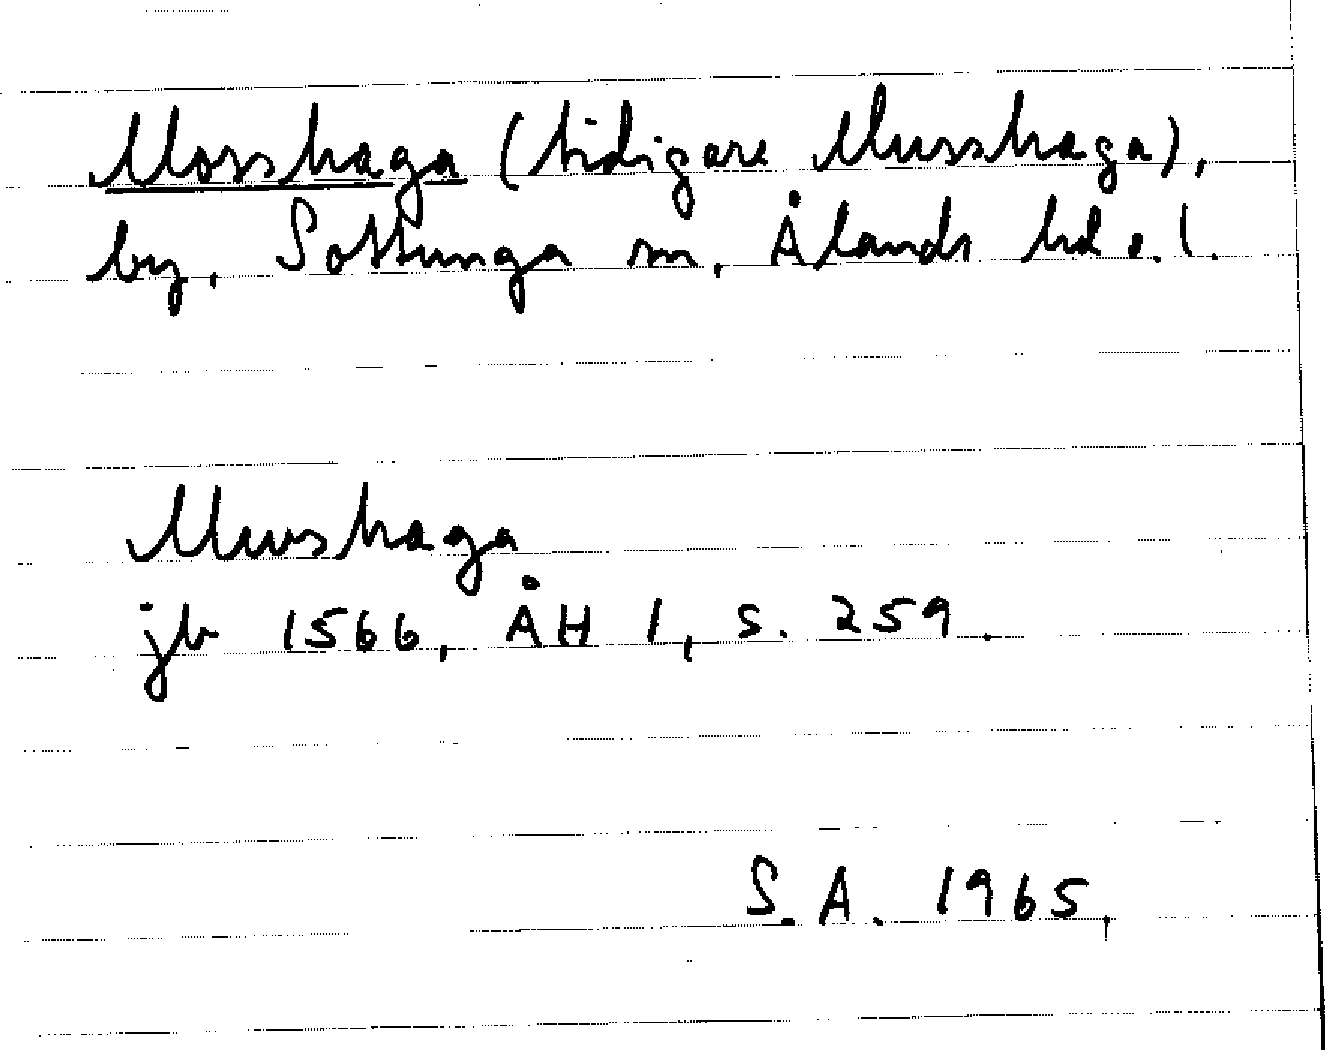 Mosshaga (tidigare Musshaga),
by, Sottunga sn, Ålands hd ö. l.
Mushaga
jb 1566, ÅH 1, s. 259.
S. A. 1965.